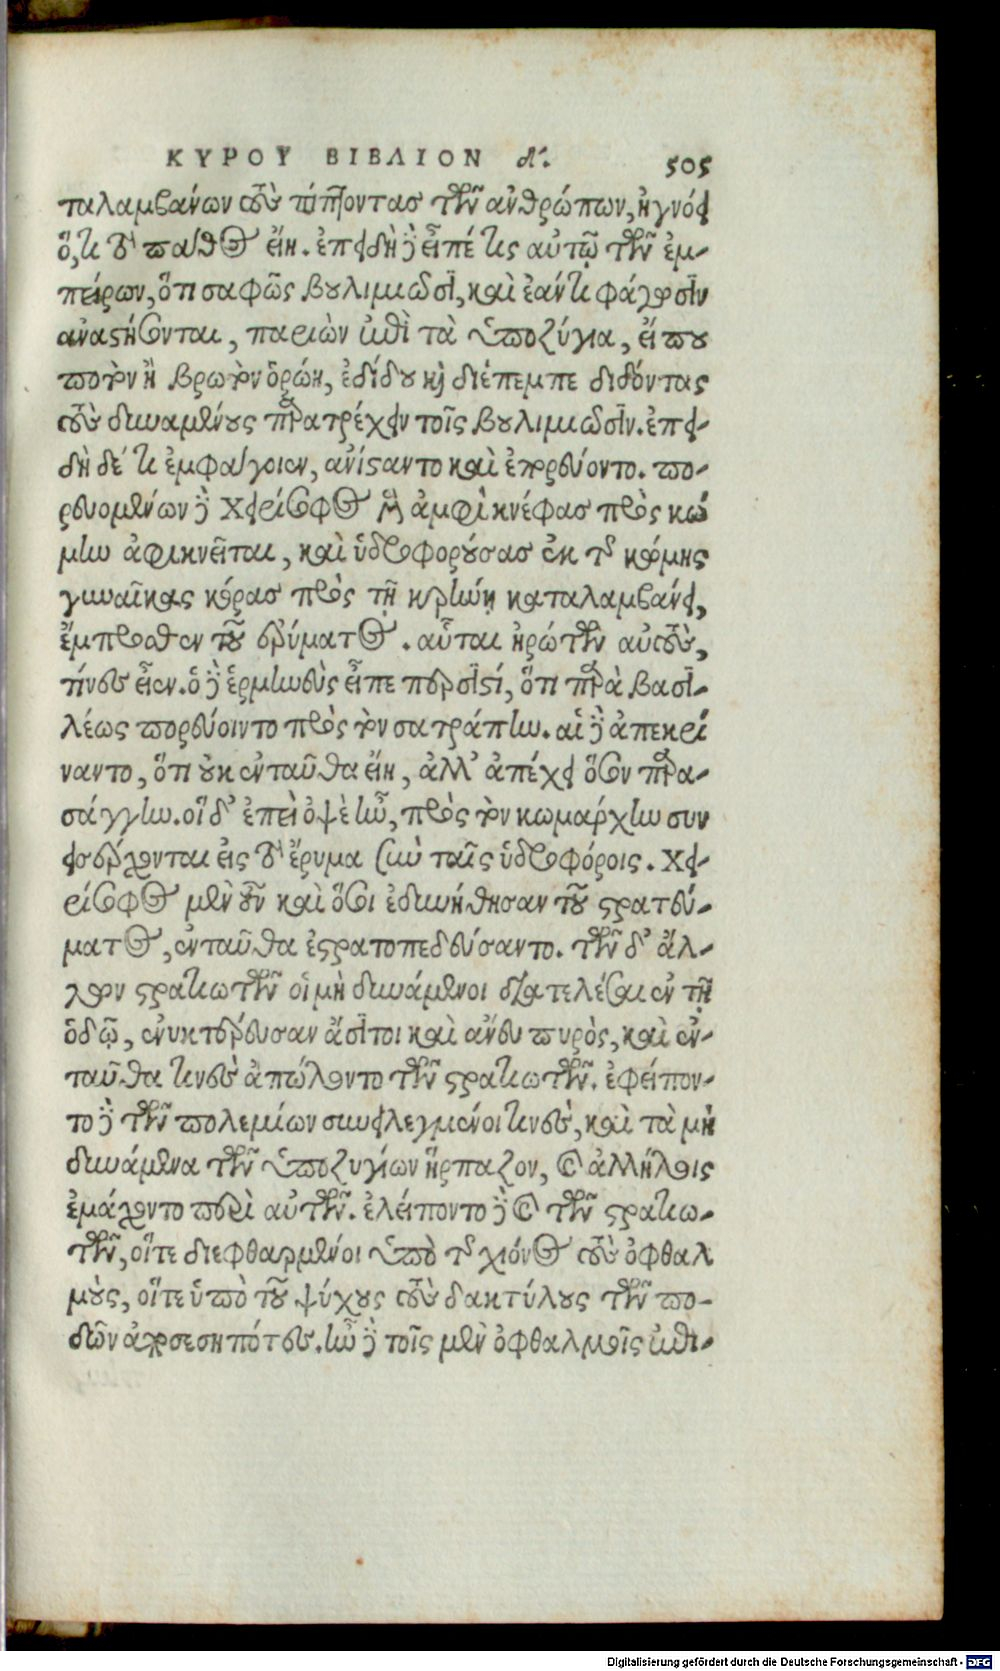 ΚΥΡΟΥ ΒΙΒΛΙΟΝ δ'. 505
ταλαμβάνων τοὺς πίπτοντας τῶν ἀνθρώπων, ἠγνόει
ὅ,τι τὸ πάθος εἴη. ἐπειδὴ δὲ εἶπέ τις αὐτῷ τῶν ἐμ-
πείρων, ὅτι σαφῶς βουλιμιῶσι, καὶ ἐάν τι φάγωσιν
ἀναστήσονται, παριὼν ἐπὶ τὰ ὑποζύγια, εἴ που
που τὸν ἢ βρωτὸν ὁρῴη, ἐδίδου καὶ διέπεμπε διδόντας
τοὺς δυναμένους παρατρέχειν τοῖς βουλιμιῶσιν. ἐπει-
δὴ δέ τι ἐμφάγοιεν, ἀνίσταντο καὶ ἐπορεύοντο. πο-
ρευομένων δὲ Χειρίσοφος μὲν ἀμφὶ κνέφας πρὸς κώ
μην ἀφικνεῖται, καὶ ὑδροφορούσας ἐκ τῆς κώμης
γυναῖκας κόρας πρὸς τῇ κρήνῃ καταλαμβάνει,
ἔμπροσθεν τοῦ ἐρύματος. αὗται ἠρώτων αὐτοὺς,
τίνες εἶεν. ὁ δὲ ἑρμηνεὺς εἶπε περσιστί, ὅτι παρὰ βασι-
λέως πορεύοιντο πρὸς τὸν σατράπην. αἱ δὲ ἀπεκρί
ναντο, ὅτι οὐκ ἐνταῦθα εἴη, ἀλλ' ἀπέχει ὅσον παρα-
σάγγην. οἱ δ' ἐπεὶ ὀψὲ ἦν, πρὸς τὸν κωμάρχην συν
εισέρχονται εἰς τὸ ἔρυμα σὺν ταῖς ὑδροφόροις. Χει-
ρίσοφος μὲν οὖν καὶ ὅσοι ἐδυνήθησαν τοῦ στρατεύ-
ματος, ἐνταῦθα ἐστρατοπεδεύσαντο. τῶν δ' ἄλ-
λων στρατιωτῶν οἱ μὴ δυνάμενοι διατελέσαι ἐν τῇ
ὁδῷ, ἐνυκτέρευσαν ἄσιτοι καὶ ἄνευ πυρὸς, καὶ ἐν-
ταῦθα τινὲς ἀπώλοντο τῶν στρατιωτῶν. ἐφείπον-
το δὲ τῶν πολεμίων συνειλεγμένοι τινὲς, καὶ τὰ μὴ
δυνάμενα τῶν ὑποζυγίων ἥρπαζον, καὶ ἀλλήλοις
ἐμάχοντο περὶ αὐτῶν. ἐλείποντο δὲ καὶ τῶν στρατιω-
τῶν, οἵτε διεφθαρμένοι ὑπὸ τῆς χιόνος τοὺς ὀφθαλ
μοὺς, οἵτε ὑπὸ τοῦ ψύχους τοὺς δακτύλους τῶν πο-
δῶν ἀποσεσηπότες. ἦν δὲ τοῖς μὲν ὀφθαλμοῖς ἐπι-
Digitalisierung gefördert durch die Deutsche Forschungsgemeinschaft - DFG